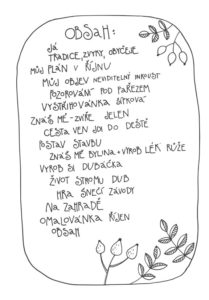 OBSAH:
JÁ
TRADICE, ZVYKY, OBYČEJE
MŮJ PLÁN V ŘÍJNU
MŮJ OBJEV NEVIDITELNÝ INKOUST
POZOROVÁNÍ POD PAŘEZEM
VYSTŘIHOVÁNKA SÍTKOVÁ
ZNÁŠ MĚ - ZVÍŘE JELEN
CESTA VEN JDI DO DEŠTĚ
POSTAV STAVBU
ZNÁŠ MĚ BYLINA + VÝROB LÉK RŮŽE
VYROB SI DUBÁČKA
ŽIVOT STROMU DUB
HRA ŠNEČÍ ZÁVODY
NA ZAHRADĚ
OMALOVÁNKA ŘÍJEN
OBSAH